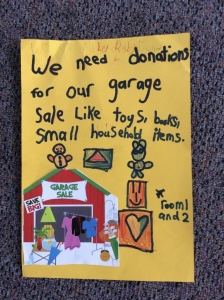 We need donations
for our garage
sale Like toys, books,
small household items.
GARAGE
SALE
SAVE
BIG!
* room 1
and 2